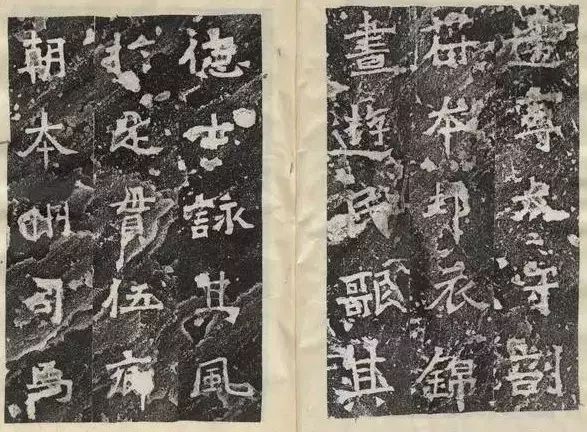 建寧太守剖
符本邦衣錦
晝遊民歌其
德士詠其風
於是貫伍
朝本州司馬